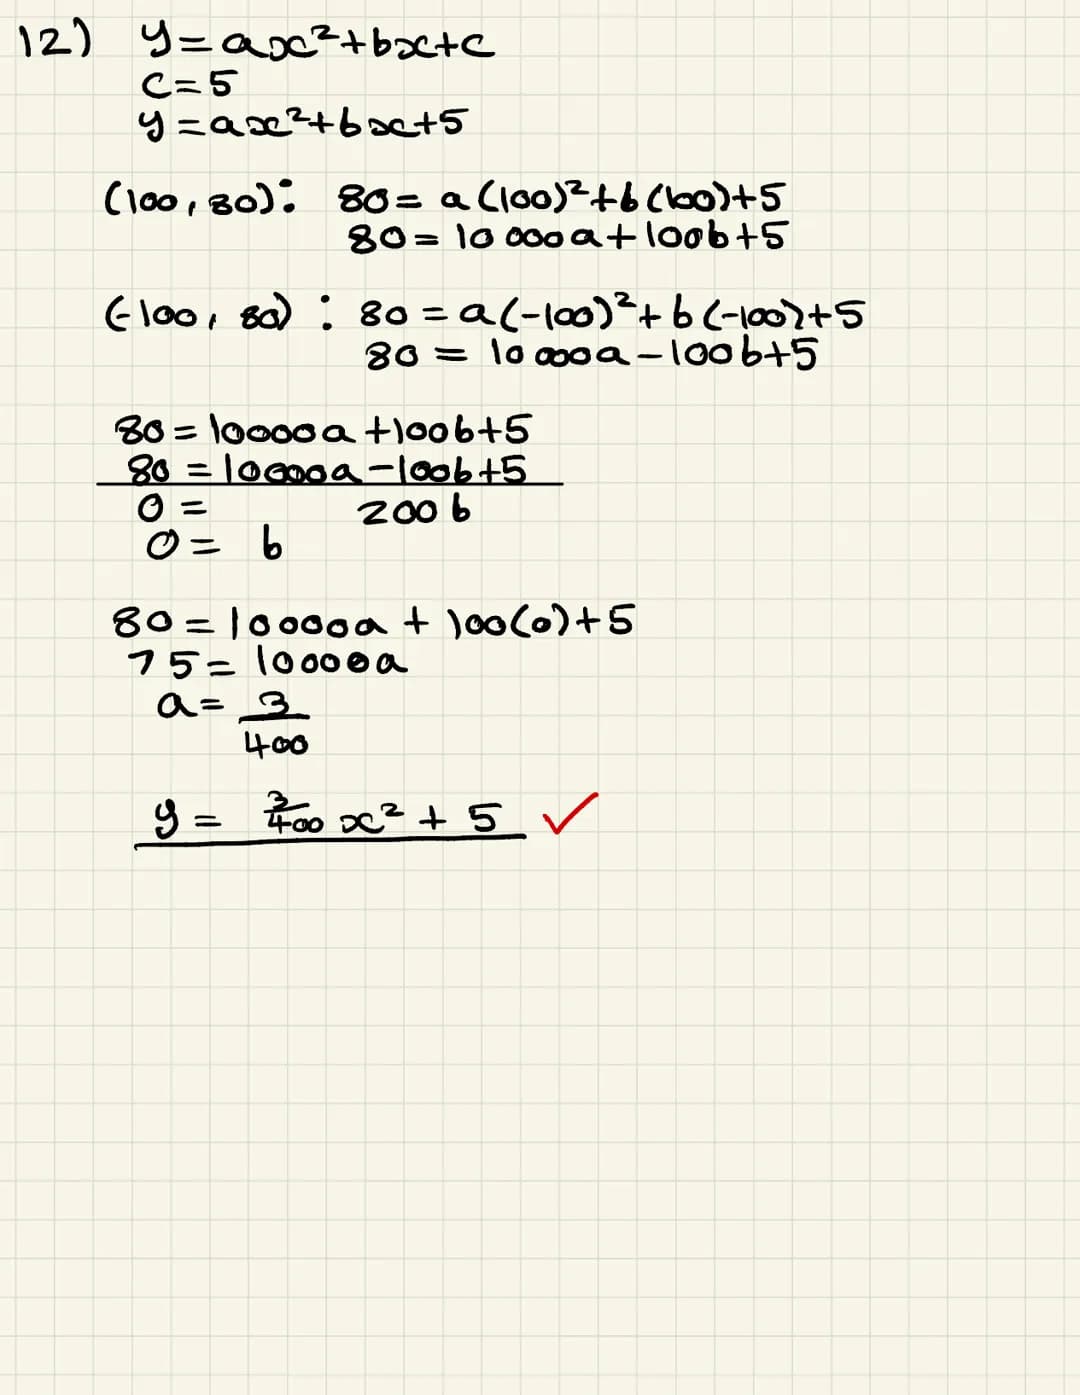 12) y=ax²+bx+c
c=5
y=ax²+bx+5
(100,80): 80= a(100)²+b(100)+5
80=10 000a+100b+5
(-100, 80) : 80 =a(-100)²+b(-100)+5
80 = 10 000a-100b+5
80=10000a+100b+5
80 =10000a-100b+5
0 = 200b
0= b
80=10000a + 100(0)+5
75=10000a
a= 3/400
y = 3/400 x² + 5 ✓